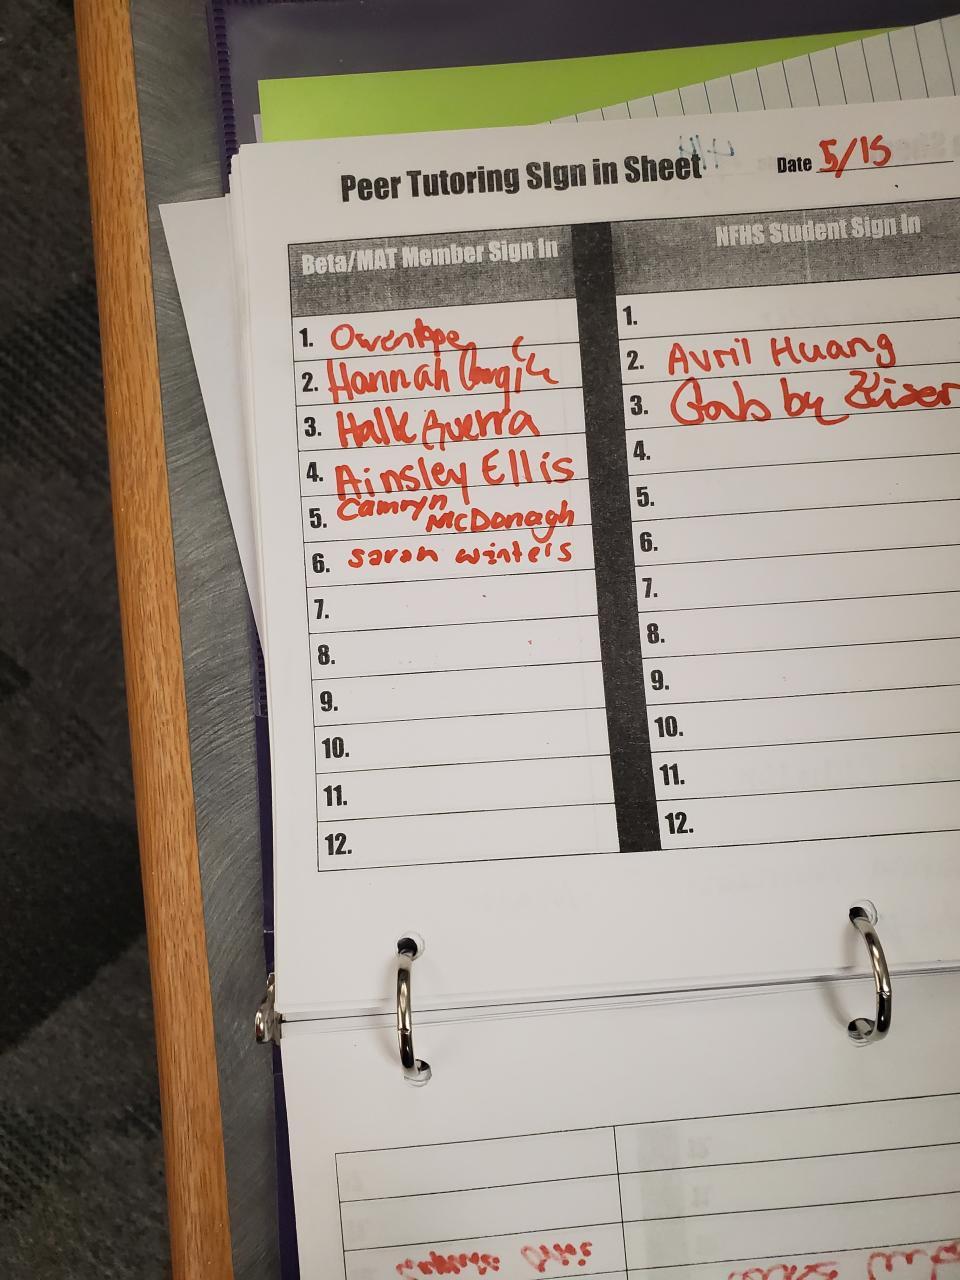 Peer Tutoring SIgn in Sheet
Date 5/15
Beta/MAT Member Sign In
NFHS Student Sign In
1. Owen
2. Hannah
3. Guerra
4. Ainsley Ellis
5. Camryn McDonagh
6. sarah winters
7.
8.
9.
10.
11.
12.
1.
2. Avril Huang
3. Gabby
4.
5.
6.
7.
8.
9.
10.
11.
12.